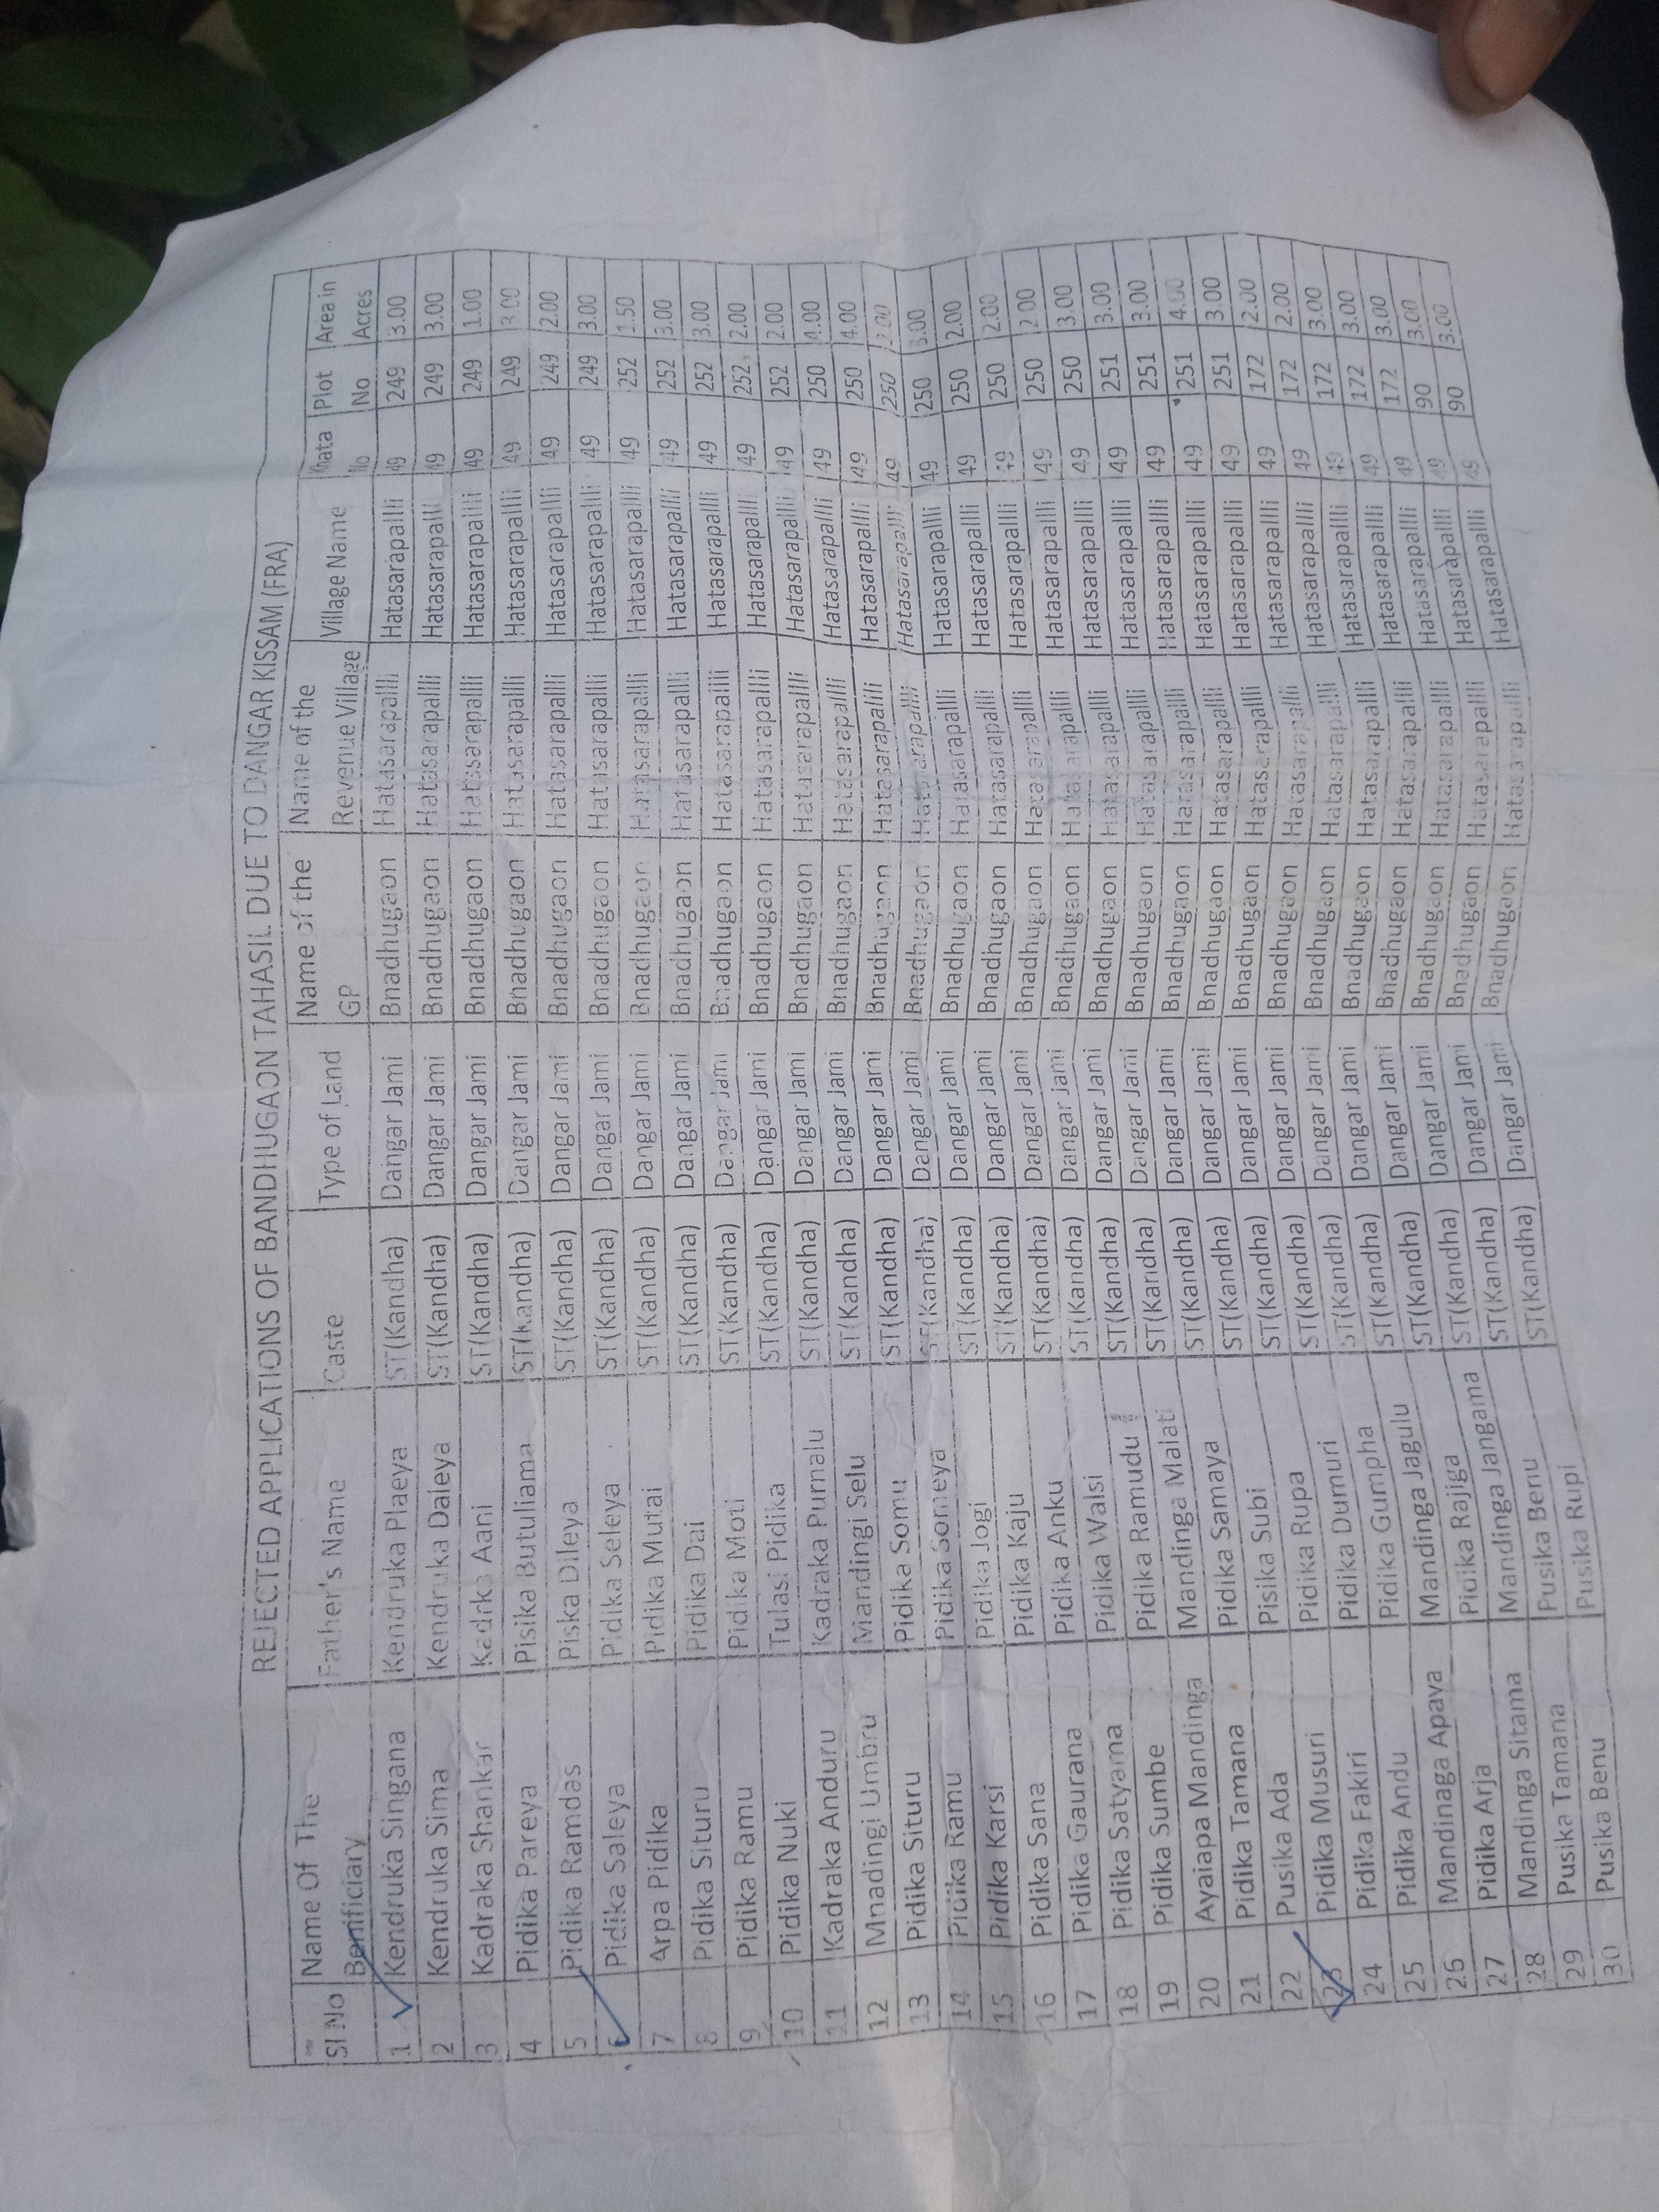 REJECTED APPLICATIONS OF BANDHUGAON TAHASIL DUE TO DANGAR KISSAM (FRA)
Sl No Name Of The Benificiary Father's Name Caste Type of Land Name of the GP Name of the Revenue Village Village Name Khata No Plot No Area in Acres
1 Kendruka Singana Kendruka Plaeya ST(Kandha) Dangar Jami Bnadhugaon Hatasarapallli Hatasarapallli 49 249 3.00
2 Kendruka Sima Kendruka Daleya ST(Kandha) Dangar Jami Bnadhugaon Hatasarapallli Hatasarapallli 49 249 3.00
3 Kadraka Shankar Kadrka Aani ST(Kandha) Dangar Jami Bnadhugaon Hatasarapallli Hatasarapallli 49 249 1.00
4 Pidika Pareya Pisika Butuliama ST(Kandha) Dangar Jami Bnadhugaon Hatasarapallli Hatasarapallli 49 249 3.00
5 Pidika Ramdas Piska Dileya ST(Kandha) Dangar Jami Bnadhugaon Hatasarapallli Hatasarapallli 49 249 2.00
6 Pidika Saleya Pidika Seleya ST(Kandha) Dangar Jami Bnadhugaon Hatasarapallli Hatasarapallli 49 249 3.00
7 Arpa Pidika Pidika Mutai ST(Kandha) Dangar Jami Bnadhugaon Hatasarapallli Hatasarapallli 49 252 1.50
8 Pidika Situru Pidika Dai ST(Kandha) Dangar Jami Bnadhugaon Hatasarapallli Hatasarapallli 49 252 3.00
9 Pidika Ramu Pidika Moti ST(Kandha) Dangar Jami Bnadhugaon Hatasarapallli Hatasarapallli 49 252 3.00
10 Pidika Nuki Tulasi Pidika ST(Kandha) Dangar Jami Bnadhugaon Hatasarapallli Hatasarapallli 49 252 2.00
11 Kadraka Anduru Kadraka Purnalu ST(Kandha) Dangar Jami Bnadhugaon Hatasarapallli Hatasarapallli 49 252 2.00
12 Mnadingi Umbru Mandingi Selu ST(Kandha) Dangar Jami Bnadhugaon Hatasarapallli Hatasarapallli 49 250 4.00
13 Pidika Situru Pidika Somu ST(Kandha) Dangar Jami Bnadhugaon Hatasarapallli Hatasarapallli 49 250 4.00
14 Pidika Ramu Pidika Someya ST(Kandha) Dangar Jami Bnadhugaon Hatasarapallli Hatasarapallli 49 250
15 Pidika Karsi Pidika Jogi ST(Kandha) Dangar Jami Bnadhugaon Hatasarapallli Hatasarapallli 49 250 3.00
16 Pidika Sana Pidika Kaju ST(Kandha) Dangar Jami Bnadhugaon Hatasarapallli Hatasarapallli 49 250 2.00
17 Pidika Gaurana Pidika Anku ST(Kandha) Dangar Jami Bnadhugaon Hatasarapallli Hatasarapallli 49 250 2.00
18 Pidika Satyama Pidika Walsi ST(Kandha) Dangar Jami Bnadhugaon Hatasarapallli Hatasarapallli 49 250 2.00
19 Pidika Sumbe Pidika Ramudu ST(Kandha) Dangar Jami Bnadhugaon Hatasarapallli Hatasarapallli 49 250 3.00
20 Ayaiapa Mandinga Mandinga Malati ST(Kandha) Dangar Jami Bnadhugaon Hatasarapallli Hatasarapallli 49 251 3.00
21 Pidika Tamana Pidika Samaya ST(Kandha) Dangar Jami Bnadhugaon Hatasarapallli Hatasarapallli 49 251 3.00
22 Pusika Ada Pisika Subi ST(Kandha) Dangar Jami Bnadhugaon Hatasarapallli Hatasarapallli 49 251 4.00
23 Pidika Musuri Pidika Rupa ST(Kandha) Dangar Jami Bnadhugaon Hatasarapallli Hatasarapallli 49 251 3.00
24 Pidika Fakiri Pidika Dumuri ST(Kandha) Dangar Jami Bnadhugaon Hatasarapallli Hatasarapallli 49 172 2.00
25 Pidika Andu Pidika Gumpha ST(Kandha) Dangar Jami Bnadhugaon Hatasarapallli Hatasarapallli 49 172 2.00
26 Mandinaga Apaya Mandinga Jagulu ST(Kandha) Dangar Jami Bnadhugaon Hatasarapallli Hatasarapallli 49 172 3.00
27 Pidika Arja Pidika Rajiga ST(Kandha) Dangar Jami Bnadhugaon Hatasarapallli Hatasarapallli 49 172 3.00
28 Mandinga Sitama Mandinga Jangama ST(Kandha) Dangar Jami Bnadhugaon Hatasarapallli Hatasarapallli 49 172 3.00
29 Pusika Tamana Pusika Benu ST(Kandha) Dangar Jami Bnadhugaon Hatasarapallli Hatasarapallli 49 90 3.00
30 Pusika Benu Pusika Rupi ST(Kandha) Dangar Jami Bnadhugaon Hatasarapallli Hatasarapallli 49 90 3.00